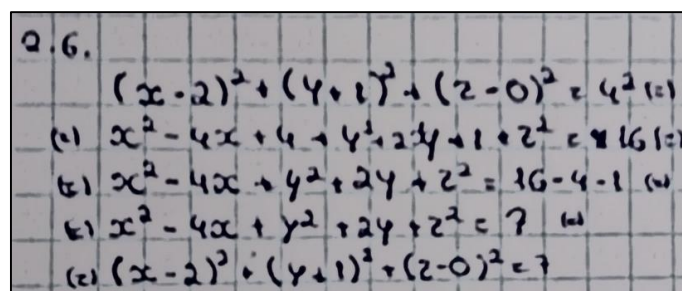 2.6.
(x-2)² + (y+1)² + (z-0)² = 4² (=)
(=) x² - 4x + 4 + y² + 2y + 1 + z² = 16 (=)
(=) x² - 4x + y² + 2y + z² = 16 - 4 - 1 (=)
(=) x² - 4x + y² + 2y + z² = 7 (=)
(=) (x-2)² + (y+1)² + (z-0)² = 7